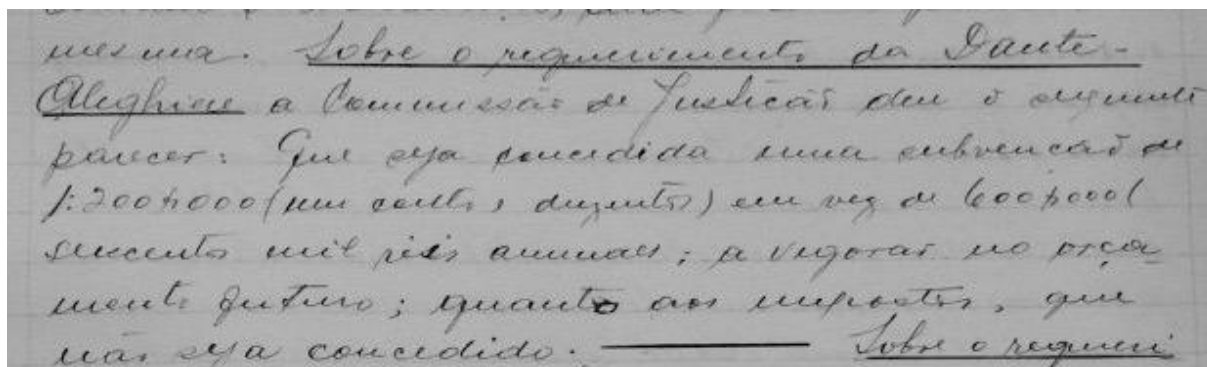 mesma. Sobre o requerimento da Dante-
Aleghiere a Commissão de Justicas deu o seguinte
parecer: Que seja concedida uma subvencão de
1:200$000 (um conto e duzentos) em vez de 600$000 (
seiscentos mil reis annuaes; a vigorar no orça-
mento futuro; quanto aos impostos, que
não seja concedido. Sobre o requeri